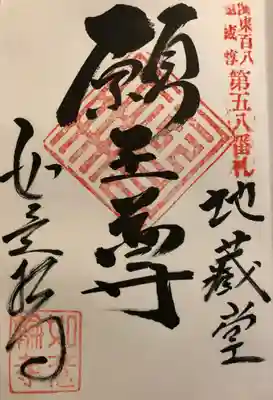 関東百八
地蔵尊
第五八番札
地蔵堂
願王尊
如意輪寺
如意輪寺